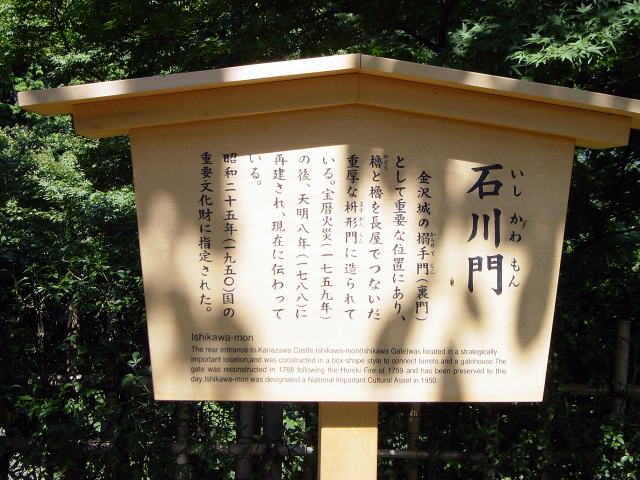 石川門
いし かわ もん
金沢城の搦手門(裏門)
からめて もん
として重要な位置にあり、
櫓と櫓を長屋でつないだ
やぐら
重厚な枡形門に造られて
ますがた もん
いる。宝暦火災(一七五九年)
の後、天明八年(一七八八)に
再建され、現在に伝わって
いる。
昭和二十五年(一九五〇)国の
重要文化財に指定された。
Ishikawa-mon
The rear entrance to Kanazawa Castle,Ishikawa-mon(Ishikawa Gate)was located in a strategically
important location,and was constructed in a box-shape style to connect turrets and a gatehouse.The
gate was reconstructed in 1788 following the Horeki Fire of 1759 and has been preserved to this
day.Ishikawa-mon was designated a National Important Cultural Asset in 1950.